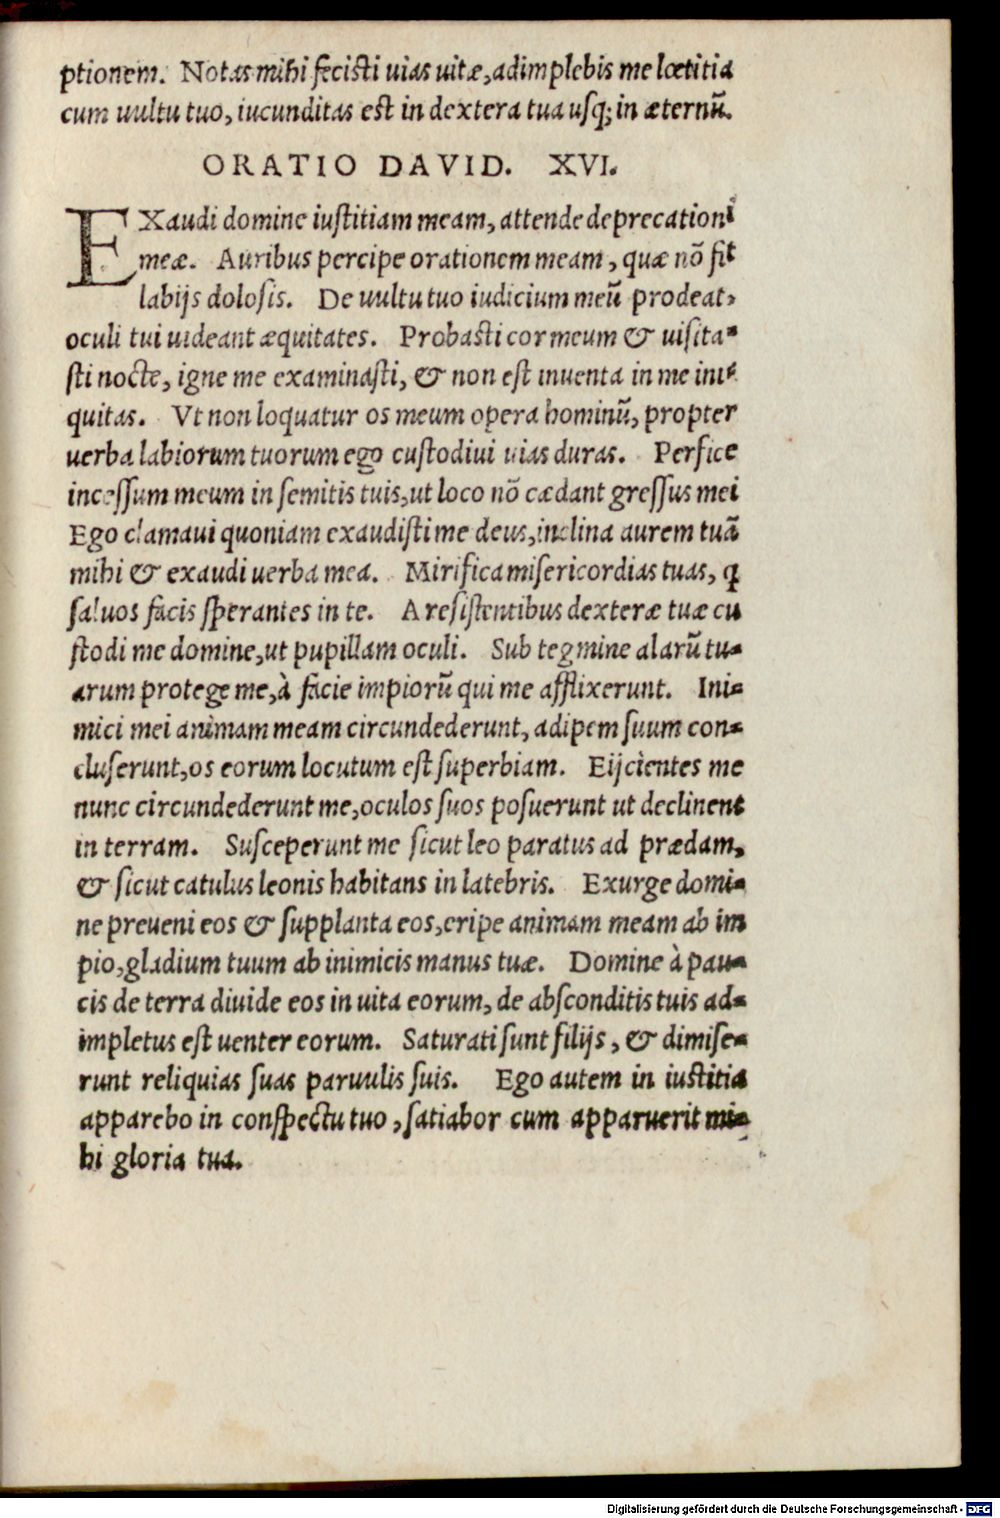 ptionem. Notas mihi fecisti uias uitæ, adimplebis me lœtitia
cum uultu tuo, iucunditas est in dextera tua usq; in æternū.
ORATIO DAVID. XVI.
EXaudi domine iustitiam meam, attende deprecationi
meæ. Auribus percipe orationem meam, quæ nō fit
labijs dolosis. De uultu tuo iudicium meū prodeat,
oculi tui uideant æquitates. Probasti cor meum & uisita-
sti nocte, igne me examinasti, & non est inuenta in me ini-
quitas. Vt non loquatur os meum opera hominū, propter
uerba labiorum tuorum ego custodiui uias duras. Perfice
incessum meum in semitis tuis, ut loco nō cædant gressus mei
Ego clamaui quoniam exaudisti me deus, inclina aurem tuā
mihi & exaudi uerba mea. Mirifica misericordias tuas, ꝗ
saluos facis sperantes in te. A resistentibus dexteræ tuæ cu
stodi me domine, ut pupillam oculi. Sub tegmine alarū tu-
arum protege me, à facie impiorū qui me afflixerunt. Ini-
mici mei animam meam circundederunt, adipem suum con-
cluserunt, os eorum locutum est superbiam. Eijcientes me
nunc circundederunt me, oculos suos posuerunt ut declinent
in terram. Susceperunt me sicut leo paratus ad prædam,
& sicut catulus leonis habitans in latebris. Exurge domi-
ne preueni eos & supplanta eos, eripe animam meam ab im
pio, gladium tuum ab inimicis manus tuæ. Domine à pau-
cis de terra diuide eos in uita eorum, de absconditis tuis ad-
impletus est uenter eorum. Saturati sunt filijs, & dimise-
runt reliquias suas paruulis suis. Ego autem in iustitia
apparebo in conspectu tuo, satiabor cum apparuerit mi-
hi gloria tua.
Digitalisierung gefördert durch die Deutsche Forschungsgemeinschaft - DFG